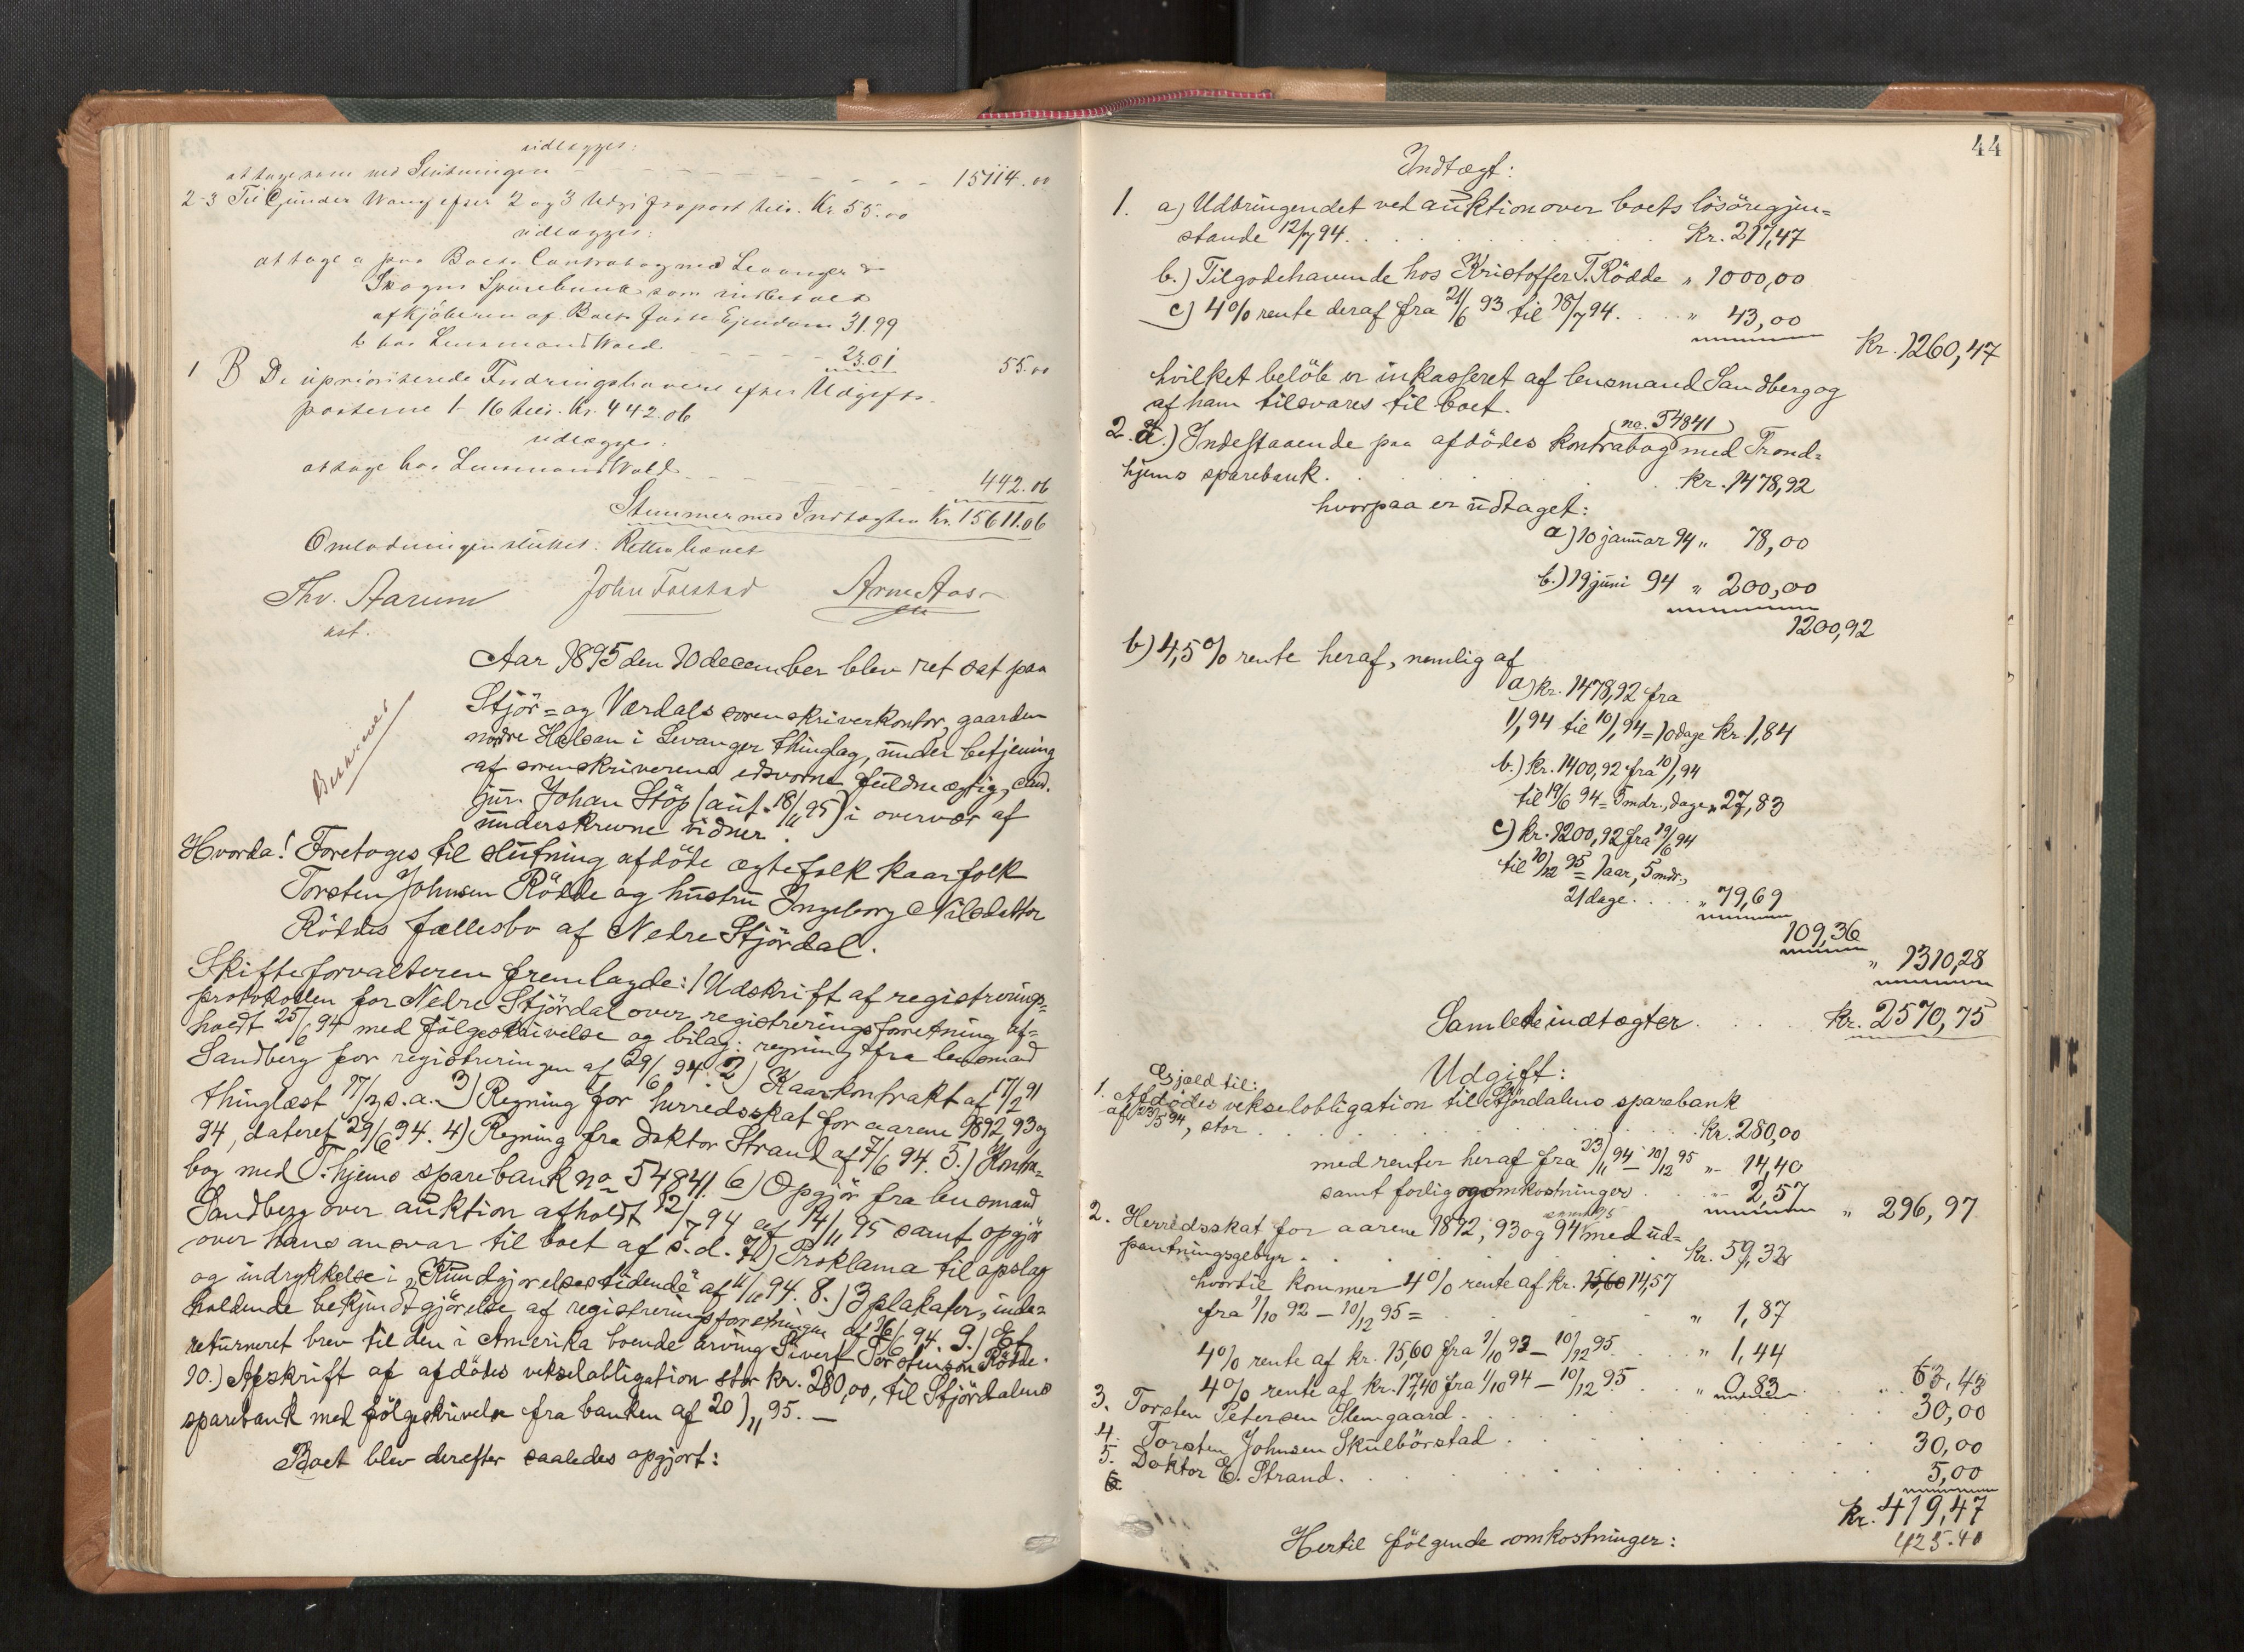 udlægges:
at tage som ved Slutningen 15114.00
2-3 Til Gunder Wang efter 2 og 3 Udgiftspost tils. Kr. 55.00
udlægges:
at tage a paa Boets Contrabog med Levanger &
Skogns Sparebank som indbetalt
af Kjøberen af Boets faste Ejendom 31.99
b hos Lensmand Wold 23.01 55.00
1 B De uprioriterede Fordringshavere efter Udgifts-
posterne 1-16 tils. Kr. 442.06
udlægges:
at tage hos Lensmand Wold 442.06
Stemmer med Indtægten Kr. 15611.06
Omlodningen sluttet. Retten hævet
Thv. Aarum John Forstad Arne Aas
cst.
Aar 1895 den 10 december blev ret sat paa
Stjör- og Værdals sorenskriverkontor, gaarden
nordre Halsan i Levanger thinglag, under betjening
af sorenskriverens edsvorne fuldmægtig, cand.
jur. Johan Stöp (aut. 18/11 95) i overvær af
underskrevne vidner.
Beskrevet
Hvorda! Foretoges til slutning afdöde ægtefolk kaarfolk
Torsten Johnsen Rödde og hustru Ingeborg Nilsdatter
Röddes fællesbo af Nedre Stjördal.
Skifteforvalteren fremlagde: 1 Udskrift af registrerings-
protokollen for Nedre Stjördal over registreringsforretning af-
holdt 25/6 94 med fölgeskrivelse og bilag: regning fra lensmand
Sandberg for registreringen af 29/6 94. 2) Kaarkontrakt af 17/2 91
thinglæst 17/2 s.a. 3) Regning for herredsskat for aarene 1892, 93 og
94, dateret 29/6 94. 4) Regning fra doktor Strand af 7/6 94. 5.) Kontra-
bog med T.hjems sparebank no 54841. 6) Opgjör fra lensmand
Sandberg over auktion afholdt 12/7 94 af 14/11 95 samt opgjör
over hans ansvar til boet af s.d. 7) Proklama til opslag
og indrykkelse i "Kundgjørelsestidende" af 4/10 94. 8.) 3 plakater, inde-
holdende bekjendtgjörelse af registreringsforretningen af 16/6 94. 9.) Et
returneret brev til den i Amerika boende arving Sivert Torstensön Rödde.
10.) Afskrift af afdödes vekselobligation stor kr. 280,00, til Stjördalens
sparebank med fölgeskrivelse fra banken af 20/11 95. —
Boet blev derefter saaledes opgjort:
44
Indtægt:
1. a) Udbringendet ved auktion over boets lösöregjen-
stande 12/7 94. kr. 217,47
b.) Tilgodehavende hos Kristoffer T. Rödde " 1000,00
c) 4% rente deraf fra 21/6 93 til 18/7 94. " 43,00
kr. 1260,47
hvilket belöb er inkasseret af lensmand Sandberg og
af ham tilsvares til boet.
no. 54841
2. a.) Indestaaende paa afdödes kontrabog med Trond-
hjems sparebank. kr. 1478,92
hvorpaa er udtaget:
a) 10 januar 94 " 78,00
b.) 19 juni 94 " 200,00
1200,92
b) 4,5% rente heraf, nemlig af
a) kr. 1478,92 fra
1/1 94 til 10/1 94 = 10 dage kr. 1,84
b.) kr. 1400,92 fra 10/1 94
til 19/6 94 = 5 mdr., dage " 27,83
c) kr. 1200,92 fra 19/6 94
til 10/12 95 = 1 aar, 5 mdr.,
21 dage " 79,69
109,36
" 1310,28
Samlede indtægter kr. 2570,75
Udgift:
Gjæld til:
1. Afdödes vekselobligation til Stjördalens sparebank
af 23/5 94, stor kr. 280,00
med renter heraf fra 23/11 94 - 10/12 95 " 14,40
samt forligsomkostninger " 2,57 " 296,97
2. Herredsskat for aarene 1892, 93 og 94 med ud-
pantningsgebyr kr. 59,32
hvortil kommer 4% rente af kr. 15,60 14,57
fra 1/10 92 - 10/12 95 = " 1,87
4% rente af kr. 15,60 fra 1/10 93 - 10/12 95 " 1,44
4% rente af kr. 17,40 fra 1/10 94 - 10/12 95 " 0,83 " 63,43
3. Torsten Petersen Stemgaard 30,00
4. Torsten Johnsen Skulbörstad 30,00
5. Doktor E. Strand 5,00
6.
kr. 419,47
425.40
Hertil fölgende omkostninger: